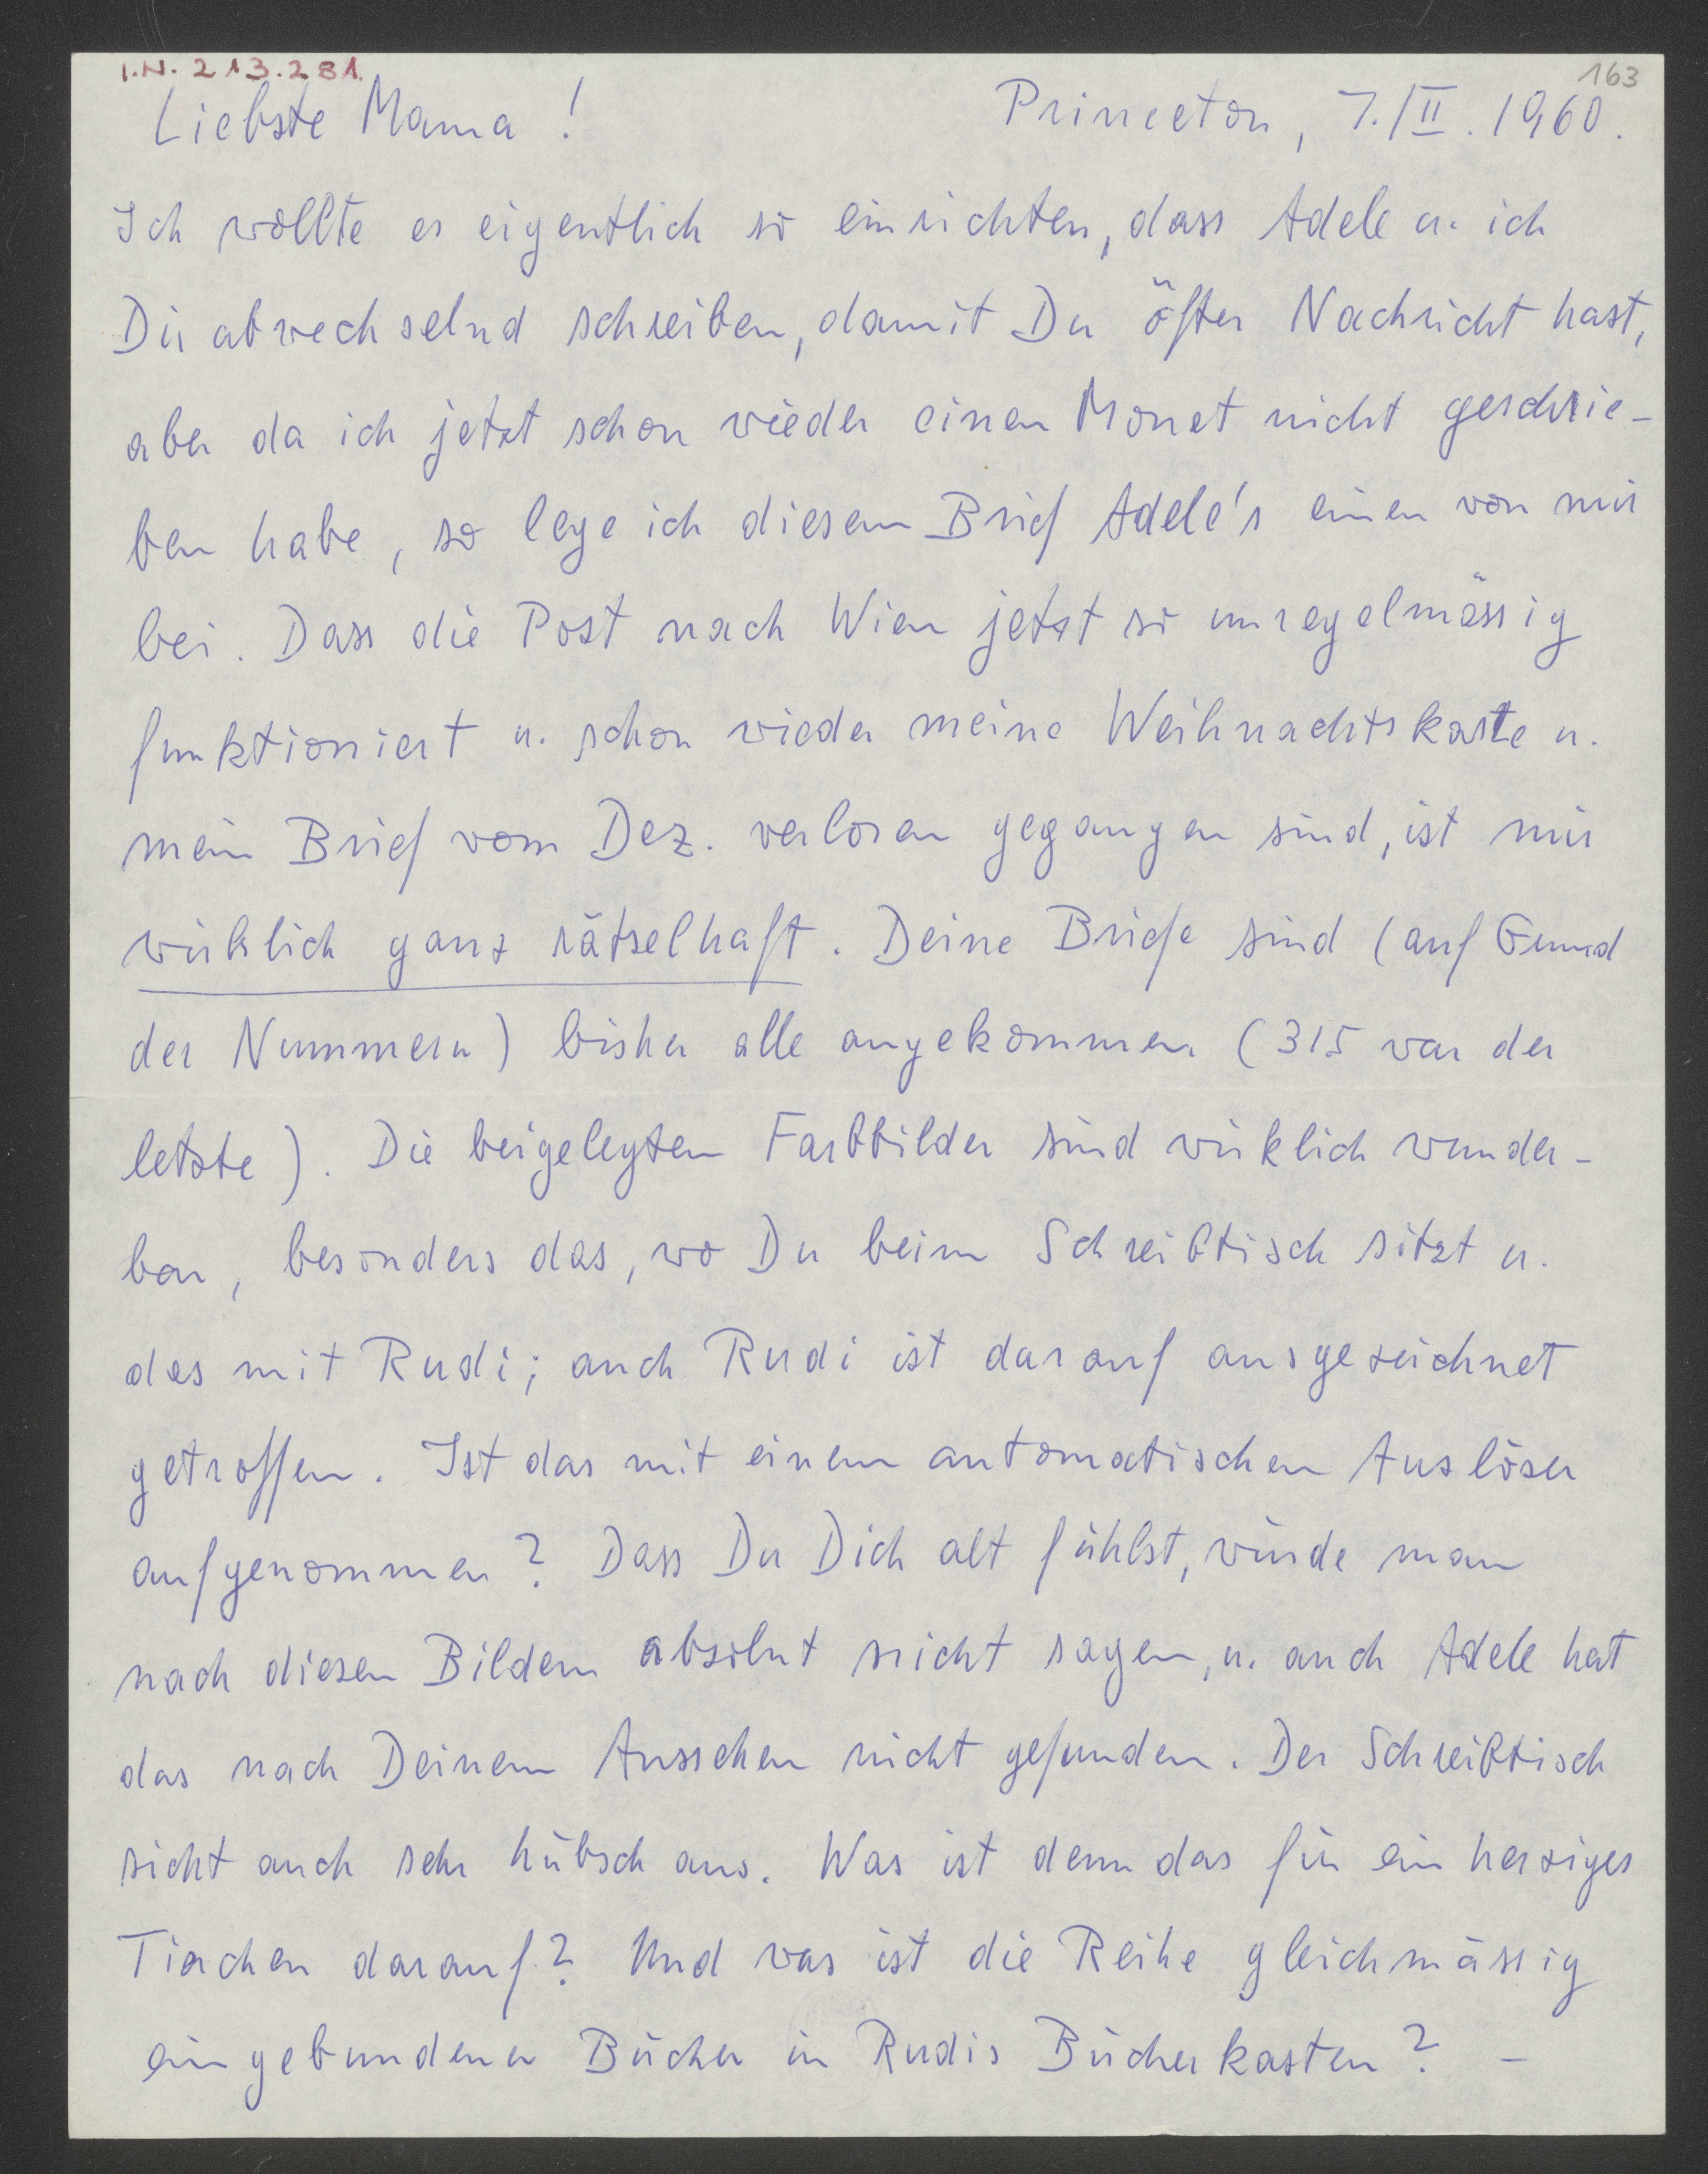 I.N. 213.281.
163
Liebste Mama! Princeton, 7./II. 1960.
Ich wollte es eigentlich so einrichten, dass Adele u. ich
Dir abwechselnd schreiben, damit Du öfter Nachricht hast,
aber da ich jetzt schon wieder einen Monat nicht geschrie-
ben habe, so lege ich diesem Brief Adele's einen von mir
bei. Dass die Post nach Wien jetzt so unregelmässig
funktioniert u. schon wieder meine Weihnachtskarte u.
mein Brief vom Dez. verloren gegangen sind, ist mir
wirklich ganz rätselhaft. Deine Briefe sind (auf Grund
der Nummern) bisher alle angekommen (315 war der
letzte). Die beigelegten Farbbilder sind wirklich wunder-
bar, besonders das, wo Du beim Schreibtisch sitzt u.
das mit Rudi; auch Rudi ist darauf ausgezeichnet
getroffen. Ist das mit einem automatischen Auslöser
aufgenommen? Dass Du Dich alt fühlst, würde man
nach diesen Bildern absolut nicht sagen, u. auch Adele hat
das nach Deinem Aussehen nicht gefunden. Der Schreibtisch
sieht auch sehr hübsch aus. Was ist denn das für ein herziges
Tierchen darauf? Und was ist die Reihe gleichmässig
eingebundener Bücher in Rudis Bücherkasten? –